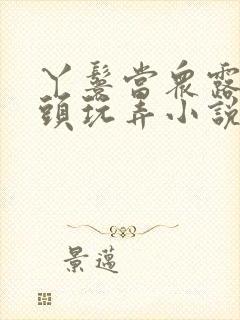 丫鬟當眾露
頭玩弄小說
景邁